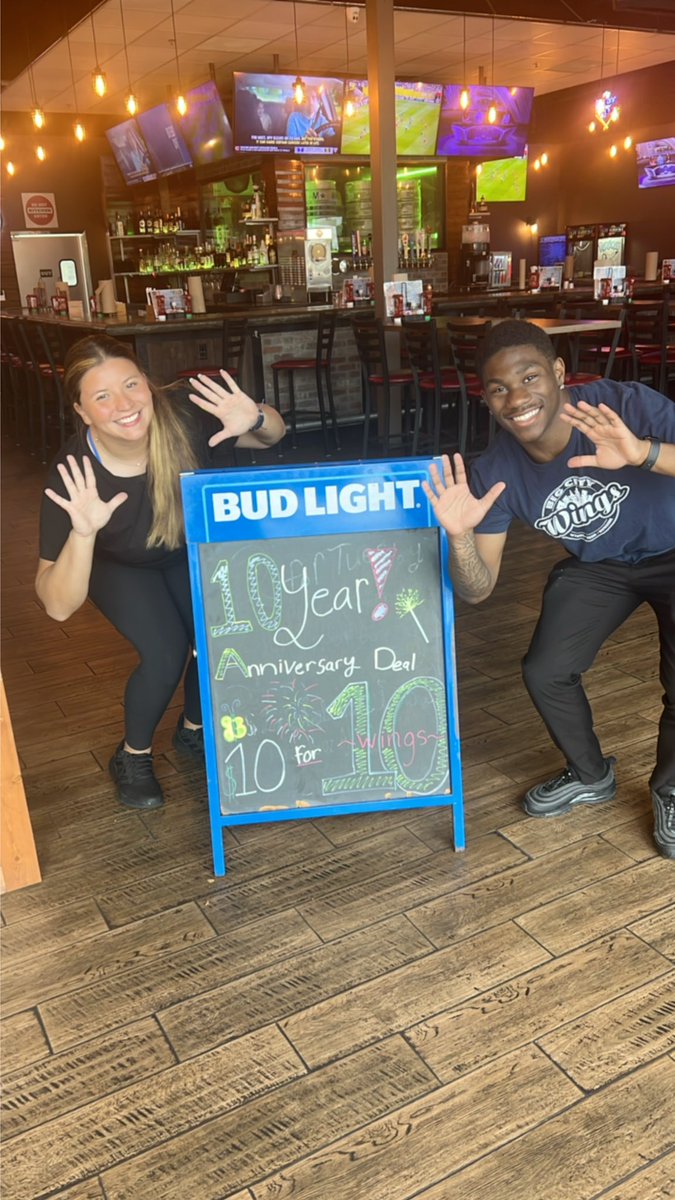 BUD LIGHT
10 Year!
Anniversary Deal
$10 for 10
~wings~
BIG CITY
Wings